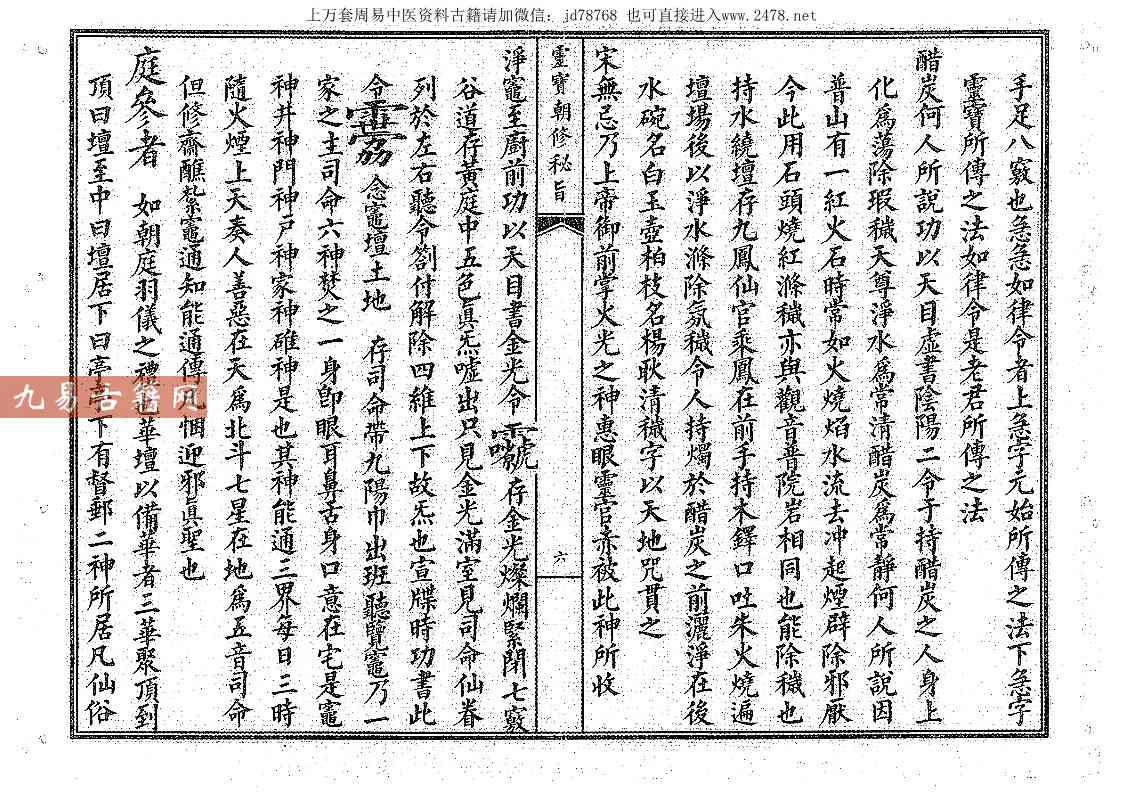 上万套周易中医资料古籍请加微信：jd78768 也可直接进入www.2478.net
手足八竅也急急如律令者上急字元始所傳之法下急字
靈寶所傳之法如律令是老君所傳之法
醋炭何人所說功以天目虛書陰陽二令于持醋炭之人身上
化爲蕩除瑕穢天尊淨水爲常清醋炭爲常靜何人所說因
普山有一紅火石時常如火燒焰水流去冲起煙辟除邪厭
今此用石頭燒紅滌穢亦與觀音普院岩相同也能除穢也
持水繞壇存九鳳仙官乘鳳在前手持木鐸口吐朱火燒遍
壇場後以淨水滌除氛穢令人持燭於醋炭之前灑淨在後
水碗名白玉壺柏枝名楊耿清穢字以天地咒貫之
宋無忌乃上帝御前掌火光之神惠眼靈官亦被此神所收
靈寶朝修秘旨
六
淨竈至廚前功以天目書金光令 存金光燦爛緊閉七竅
谷道存黃庭中五色眞炁噓出只見金光滿室見司命仙眷
列於左右聽令劄付解除四維上下故炁也宣牒時功書此
令 念竈壇土地 存司命帶九陽巾出班聽覽竈乃一
家之主司命六神焚之一身卽眼耳鼻舌身口意在宅是竈
神井神門神戶神家神碓神是也其神能通三界每日三時
隨火煙上天奏人善惡在天爲北斗七星在地爲五音司命
但修齋醮紮竈通知能通傳凡悃迎邪眞聖也
庭參者 如朝庭羽儀之禮也華壇以備華者三華聚頂到
頂曰壇至中曰壇居下曰亭亭下有督郵二神所居凡仙俗
九易古籍网